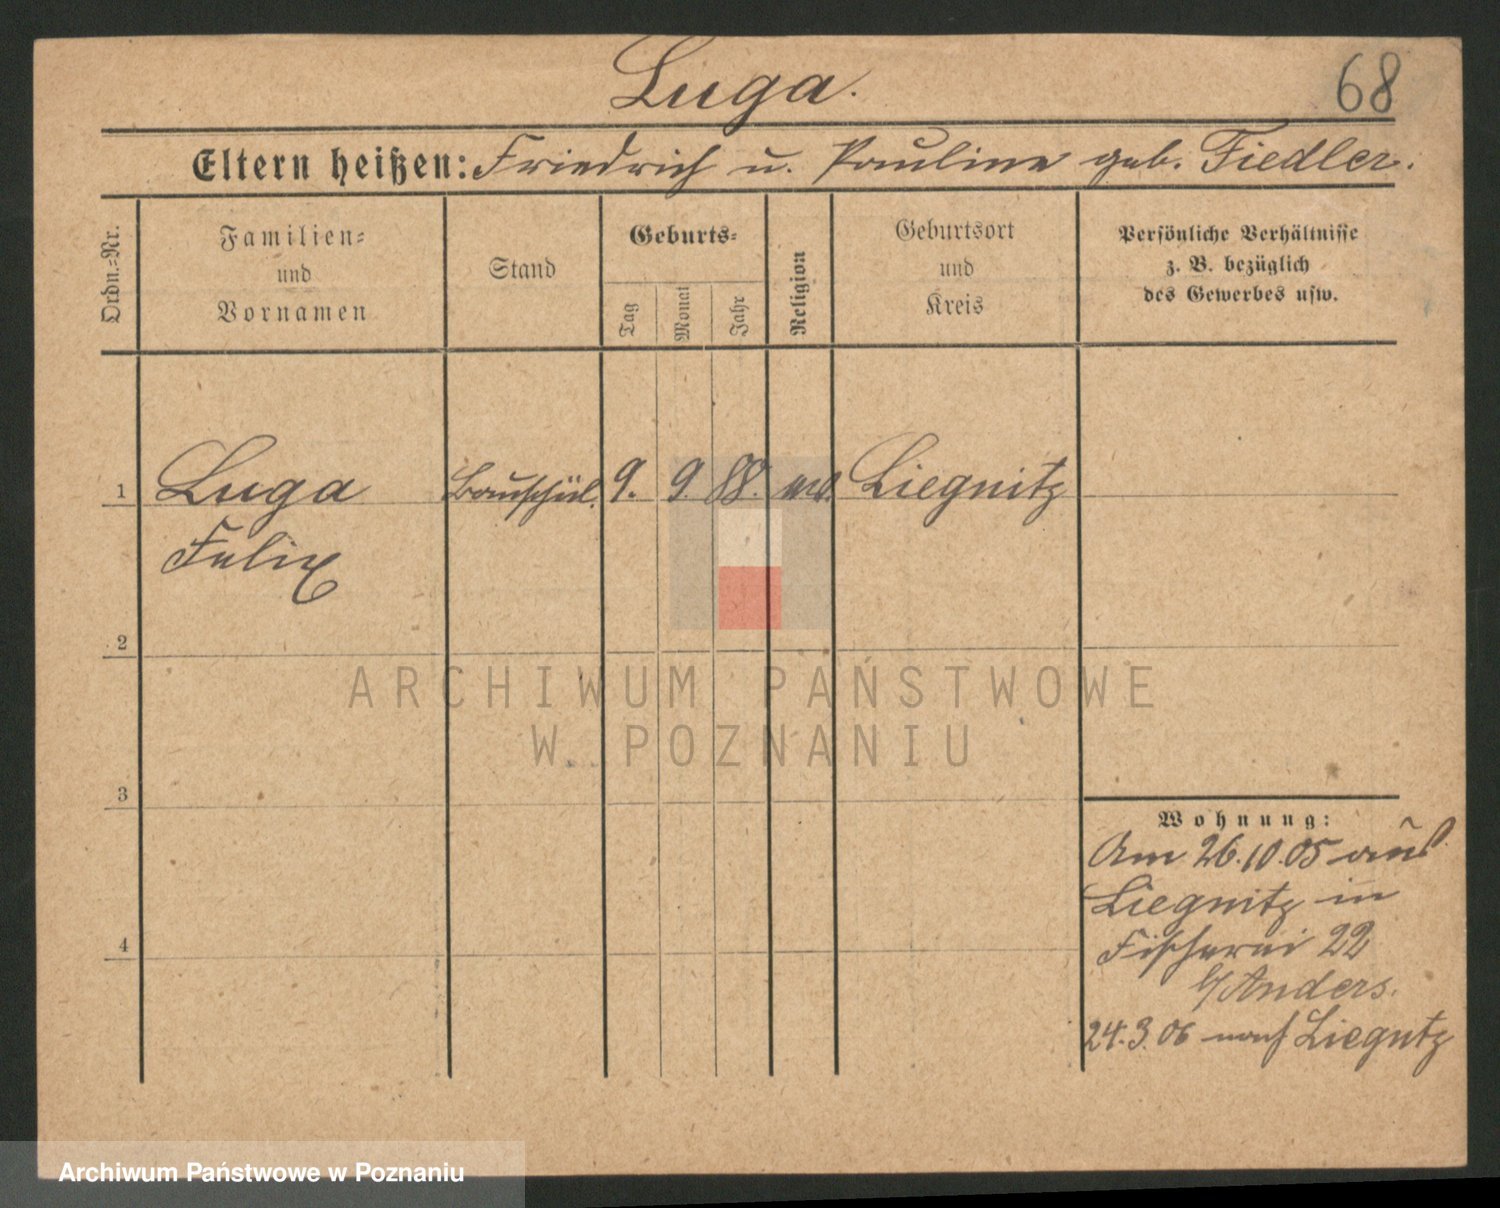 Luga.
68
Eltern heißen: Friedrich u. Pauline geb. Fiedler.
Ordn.-Nr.
Familien-
und
Vornamen
Stand
Geburts-
Tag
Monat
Jahr
Religion
Geburtsort
und
Kreis
Persönliche Verhältnisse
z. B. bezüglich
des Gewerbes usw.
1 Luga Bauschül. 9. 9. 88. Liegnitz
Felix
2
3
4
Wohnung:
Am 26.10.05 aus
Liegnitz in
Fischerei 22
b/ Anders.
24.3.06 nach Liegnitz
ARCHIWUM PAŃSTWOWE
W POZNANIU
Archiwum Państwowe w Poznaniu